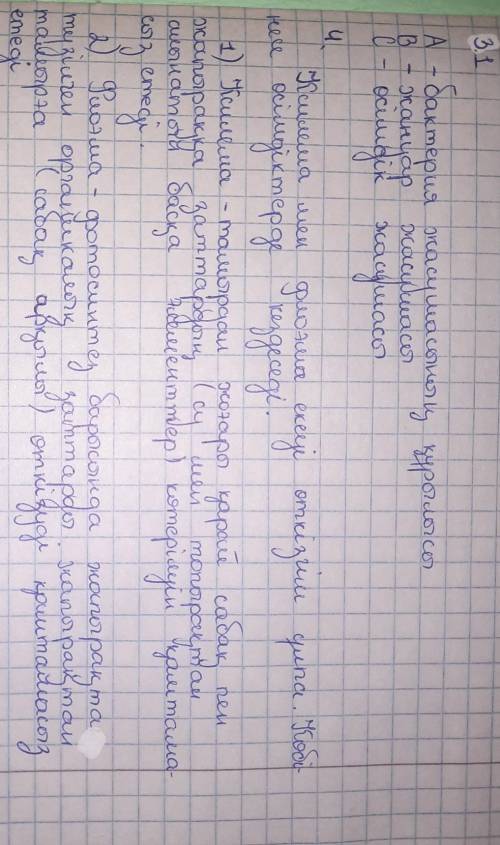 31
А - бактерия жасушасының құрылысы
В - жануар жасушасы
С - өсімдік жасушасы
4.
Ксилема мен флоэма екеуі өткізгіш ұлпа. Көбі-
несе өсімдіктерде кездеседі.
1) Ксилема - тамырдан жоғары қарай сабақ пен
жапыраққа заттардың (су мен топырақтан
алынатын басқа элементтер) көтерілуін қамтама-
сыз етеді.
2) Флоэма - фотосинтез барысында жапырақта
түзілген органикалық заттарды жапырақтан
тамырға (сабақ арқылы) өткізуді қамтамасыз
етеді